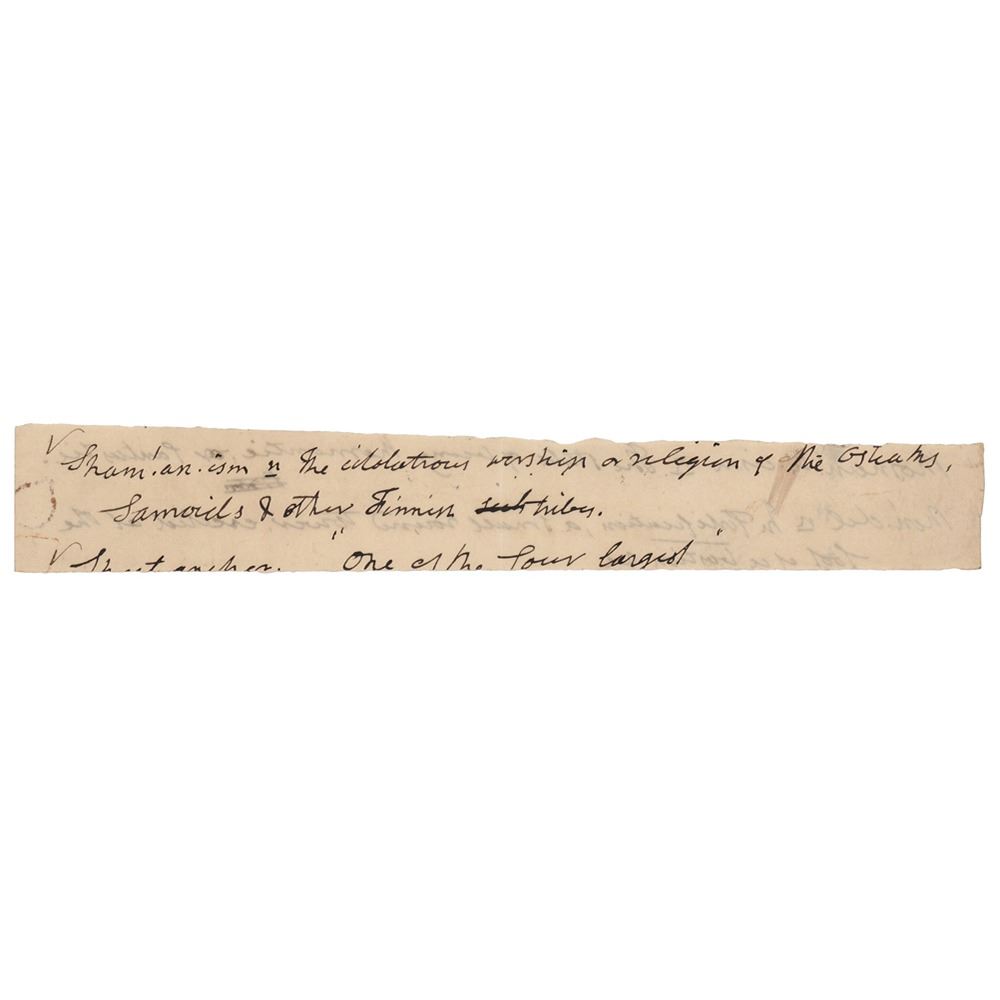 √ Sham'.an.ism n the idolatrous worship or religion of the Ostiaks,
Samoids & other Finnish sub tribes.
√ Sheet anchor. "One of the four largest"